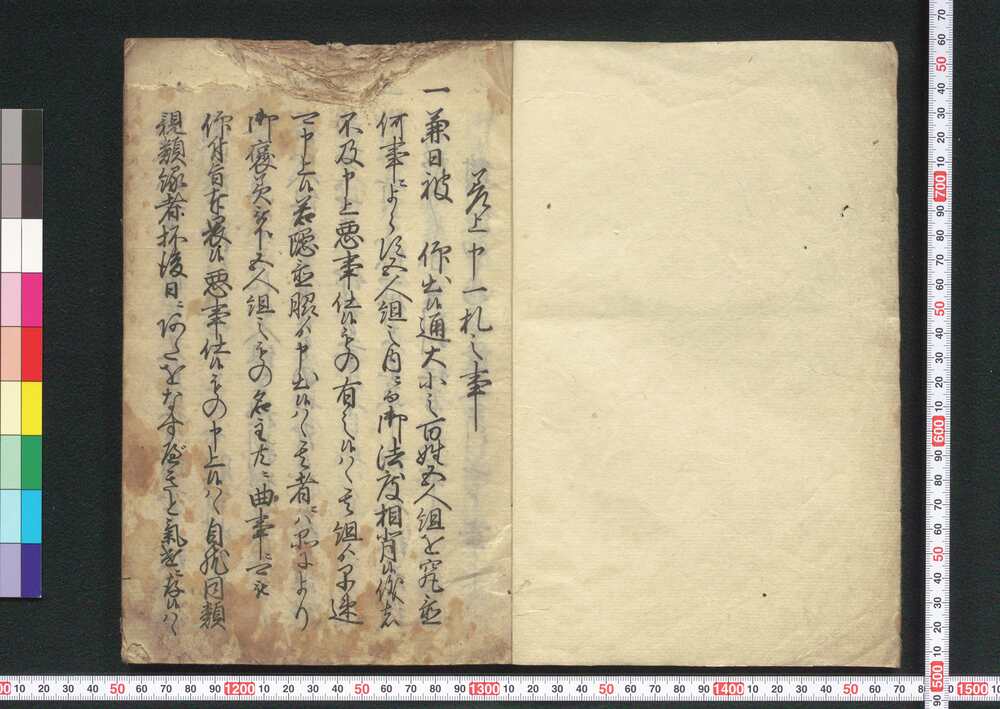 差上申一札之事
一兼日被 仰出候通大小之百姓五人組を究置
何事ニよらす五人組之内ニ而御法度相背候儀者
不及申上悪事仕候もの有之候ハヽ其組ゟ早速
可申上候若隠置脇ゟ申出候ハヽ其者ニハ品により
御褒美被下五人組之もの名主共ニ曲事ニ可被
仰付旨奉畏候悪事仕候もの申上候ハヽ自然同類
親類縁者抔後日ニあたをなすべきと氣遣ニ存候ハヽ